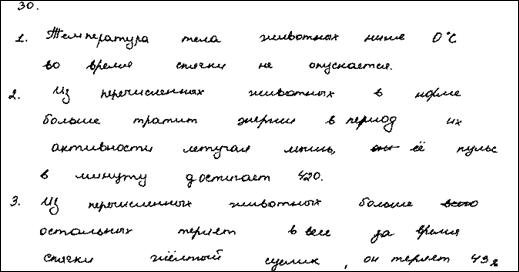 30.
1. Температура тела животных ниже 0°С
во время спячки не опускается.
2. Из перечисленных животных в норме
больше тратит энергии в период их
активности летучая мышь, её пульс
в минуту достигает 420.
3. Из перечисленных животных больше всего
остальных теряет в весе за время
спячки жёлтый суслик, он теряет 43%